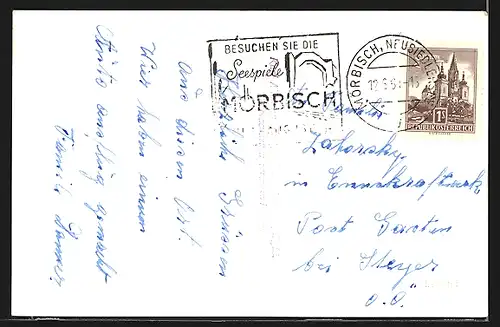 BESUCHEN SIE DIE
Seespiele
MÖRBISCH
MÖRBISCH, NEUSIEDL
1S
REPUBLIK ÖSTERREICH
Herzliche Grüsse
aus diesem Ort.
Wir haben einen
Autoausflug gemacht
Familie
Familie
Zahorsky
in Ennskraftwerk
Post Garsten
bei Steyer
O.Ö.